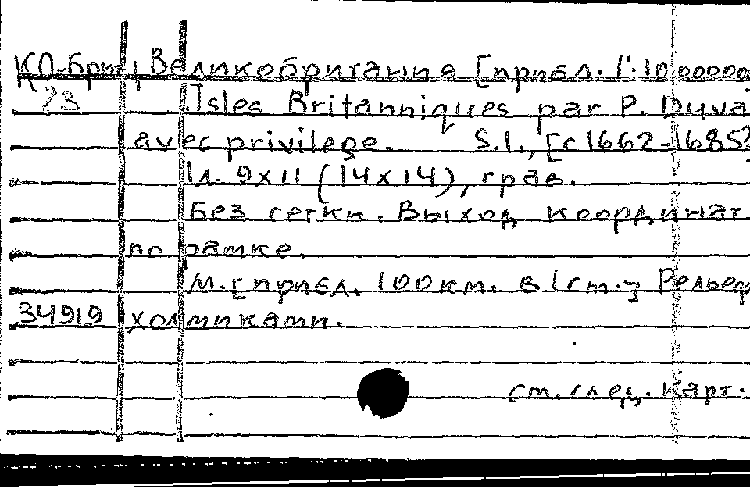 КО-Брит Великобритания [прибл. 1:10000000
23 Isles Britanniques par P. Duva
avec privilege. S.l., [c1662-1685?
1л. 9х11 (14х14), грав.
Без сетки. Выход координат
по рамке.
М. [прибл. 100 км. в 1 см.] Рельеф
34919 холмиками.
см. след. карт.